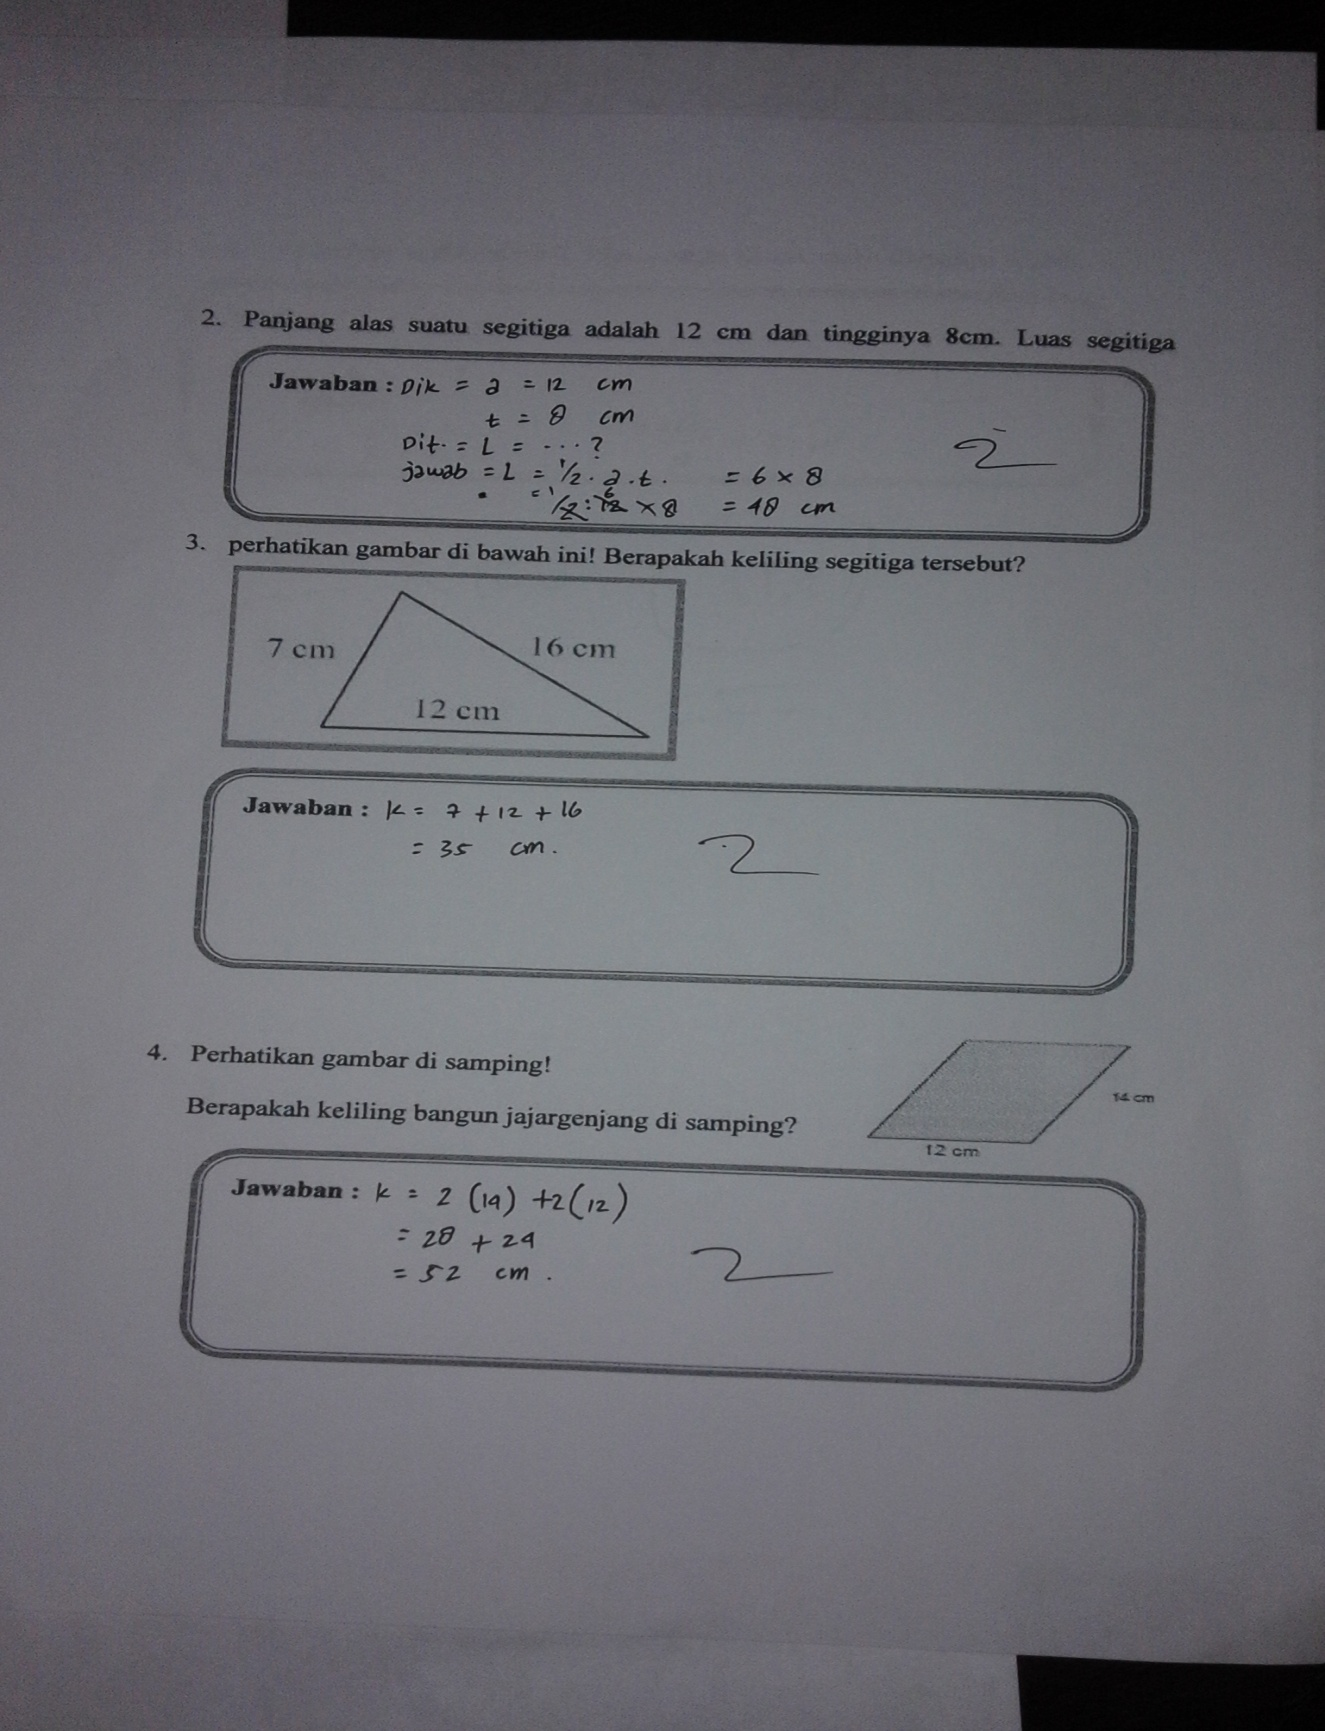 2. Panjang alas suatu segitiga adalah 12 cm dan tingginya 8cm. Luas segitiga
Jawaban : Dik = a = 12 cm
t = 8 cm
Dit. = L = .... ?
jawab = L = 1/2 . a . t. = 6 x 8
= 1/2 : 12 6 x 8 = 48 cm
2
3. perhatikan gambar di bawah ini! Berapakah keliling segitiga tersebut?
7 cm
16 cm
12 cm
Jawaban : k = 7 + 12 + 16
= 35 cm.
2
4. Perhatikan gambar di samping!
14 cm
Berapakah keliling bangun jajargenjang di samping?
12 cm
Jawaban : k = 2 (14) + 2 (12)
= 28 + 24
= 52 cm .
2